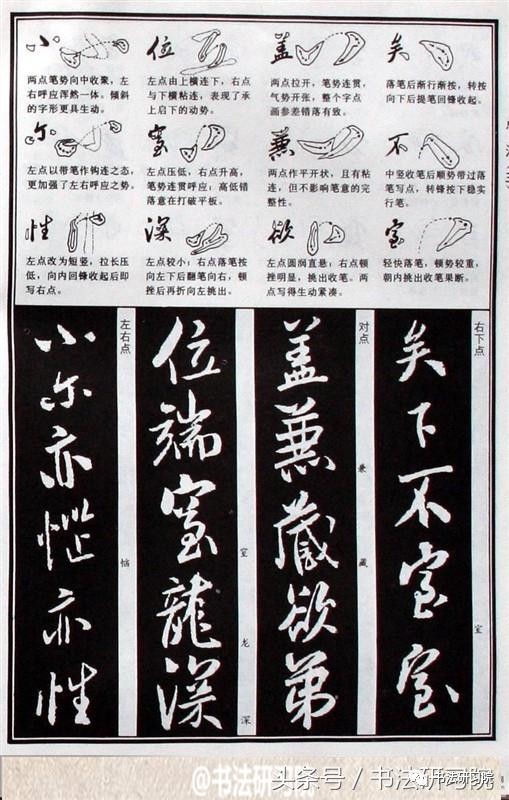 小
两点笔势向中收聚，左
右呼应浑然一体。倾斜
的字形更具生动。
位
左点由上横连下，右点
与下横粘连，表现了承
上启下的动势。
盖
两点拉开，笔势连贯，
气势开张，整个字点
画参差错落有致。
矣
落笔后渐行渐按，转按
向下后提笔回锋收起。
尔
左点以带笔作钩连之态，
更加强了左右呼应之势。
室
左点压低，右点升高，
笔势连贯呼应；高低错
落意在打破平板。
兼
两点作平开状，且有粘
连，但不影响笔意的完
整性。
不
中竖收笔后顺势带过落
笔写点，转锋按下稳实
行笔。
性
左点改为短竖，拉长压
低，向内回锋收起后即
写右点。
深
左点较小；右点落笔按
向左下后翻笔向右，顿
挫后再折向左挑出。
欲
左点圆润直悬；右点顿
挫明显，挑出收笔。两
点写得生动紧凑。
室
轻快落笔，顿势较重，
朝内挑出收笔果断。
右下点
矣下不室室
室
对点
盖兼藏欲弟
兼
藏
位端室龍深
室
龙
深
左右点
小尔亦恼亦性
恼
@书法研究院
头条号 / 书法研习院
书法研习院